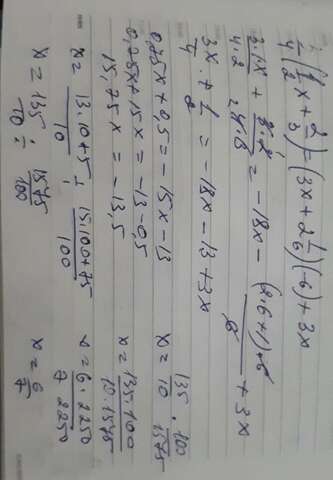 1/4 (1/2 x + 2/3) = (3x + 2 1/6)(-6) + 3x
3·1x/4·2 + = -18x - (2·6+1)·6/6 + 3x
3x/4 + 1/2 = -18x - 13 + 3x
0,75x + 0,5 = -15x - 13
0,75x + 15x = -13 - 0,5
15,75x = -13,5
x = 13·10+5/10 : 15·100+75/100
x = 135/10 : 1575/100
x = 135/10 · 100/1575
x = 135·100/10·1575
x = 6·2250/7·2250
x = 6/7